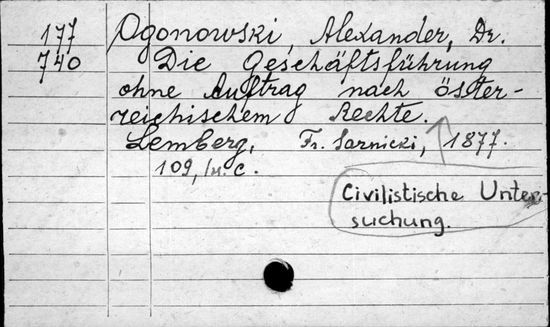 177 Ogonowski, Alexander, Dr.
740 Die Geschäftsführung
ohne Auftrag nach öster-
reichischem Rechte.
Lemberg, Fr. Sarnicki, 1877.
109, c.
Civilistische Unter-
suchung.